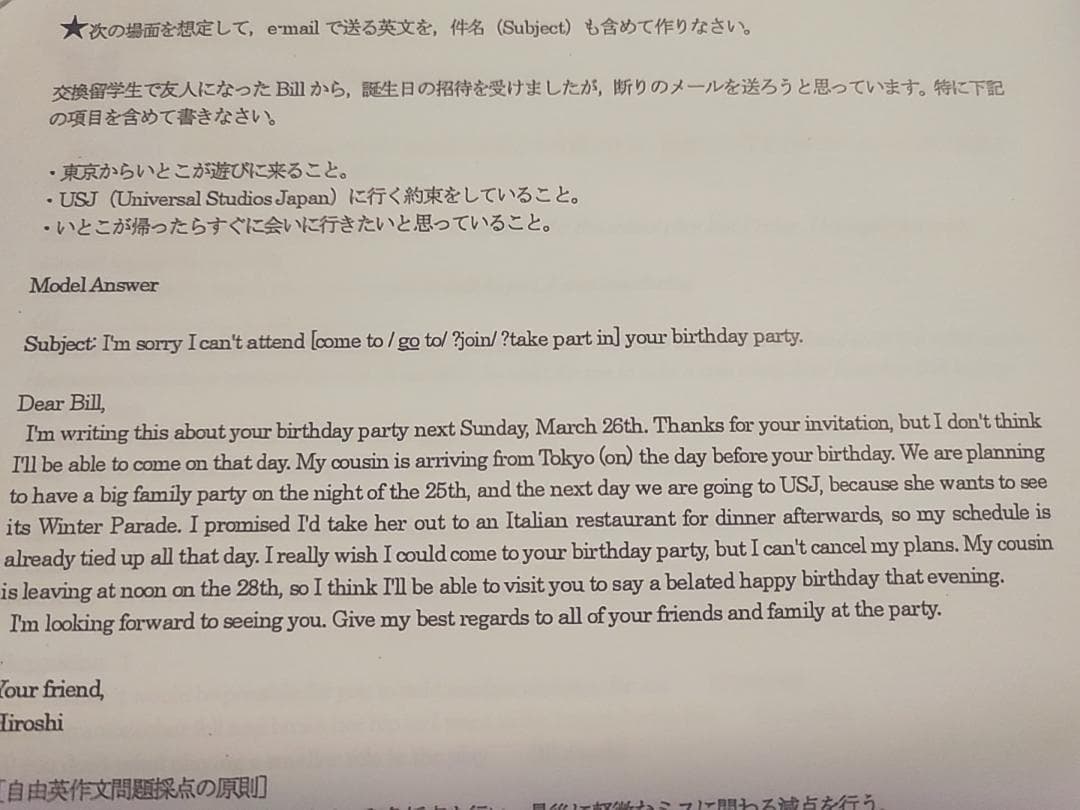 ★次の場面を想定して，e-mail で送る英文を，件名（Subject）も含めて作りなさい。
交換留学生で友人になった Bill から，誕生日の招待を受けましたが，断りのメールを送ろうと思っています。特に下記
の項目を含めて書きなさい。
・東京からいとこが遊びに来ること。
・USJ（Universal Studios Japan）に行く約束をしていること。
・いとこが帰ったらすぐに会いに行きたいと思っていること。
Model Answer
Subject: I'm sorry I can't attend [come to / go to/ ?join/ ?take part in] your birthday party.
Dear Bill,
I'm writing this about your birthday party next Sunday, March 26th. Thanks for your invitation, but I don't think
I'll be able to come on that day. My cousin is arriving from Tokyo (on) the day before your birthday. We are planning
to have a big family party on the night of the 25th, and the next day we are going to USJ, because she wants to see
its Winter Parade. I promised I'd take her out to an Italian restaurant for dinner afterwards, so my schedule is
already tied up all that day. I really wish I could come to your birthday party, but I can't cancel my plans. My cousin
is leaving at noon on the 28th, so I think I'll be able to visit you to say a belated happy birthday that evening.
I'm looking forward to seeing you. Give my best regards to all of your friends and family at the party.
Your friend,
Hiroshi
[自由英作文問題採点の原則]
最後に軽微なミスに関わる減点を行う。